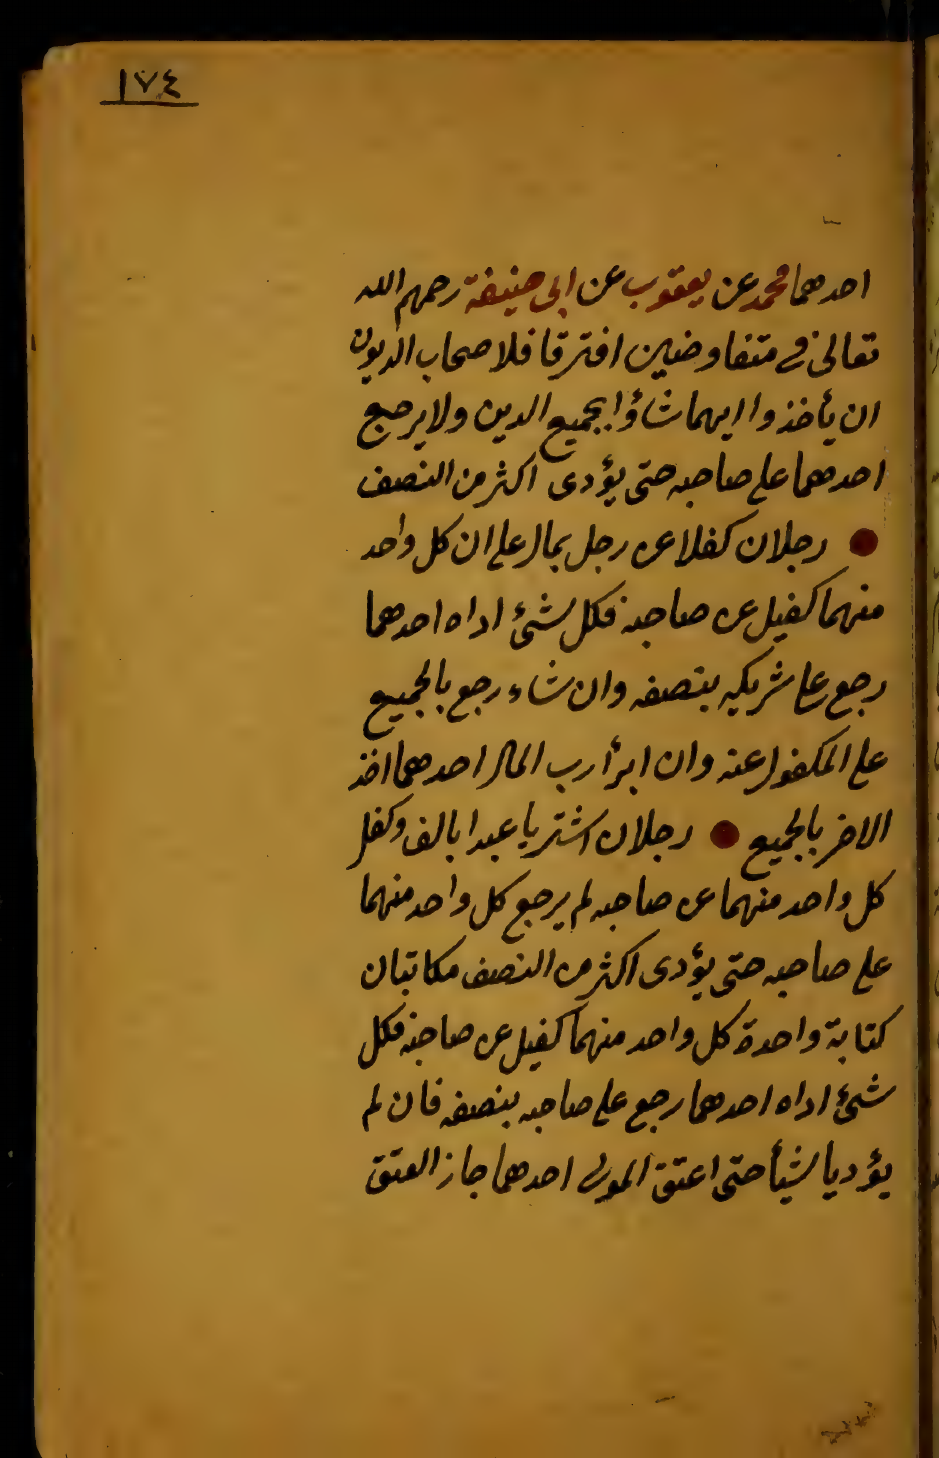 ١٧٤
احدهما محمد عن يعقوب عن ابى حنيفة رحمهم الله
تعالى فى متفاوضين افترقا فلاصحاب الديون
ان يأخذوا ايهما شاؤا بجميع الدين ولا يرجع
احدهما على صاحبه حتى يؤدى اكثر من النصف
رجلان كفلا عن رجل بمال على ان كل واحد
منهما كفيل عن صاحبه فكل شئ اداه احدهما
رجع على شريكه بنصفه وان شاء رجع بالجميع
على المكفول عنه وان ابرأ رب المال احدهما اخذ
الاخر بالجميع رجلان اشتريا عبدا بالف وكفل
كل واحد منهما عن صاحبه لم يرجع كل واحد منهما
على صاحبه حتى يؤدى اكثر من النصف مكاتبان
كتابة واحدة كل واحد منهما كفيل عن صاحبه فكل
شئ اداه احدهما رجع على صاحبه بنصفه فان لم
يؤديا شيأ حتى اعتق المولى احدهما جاز العتق